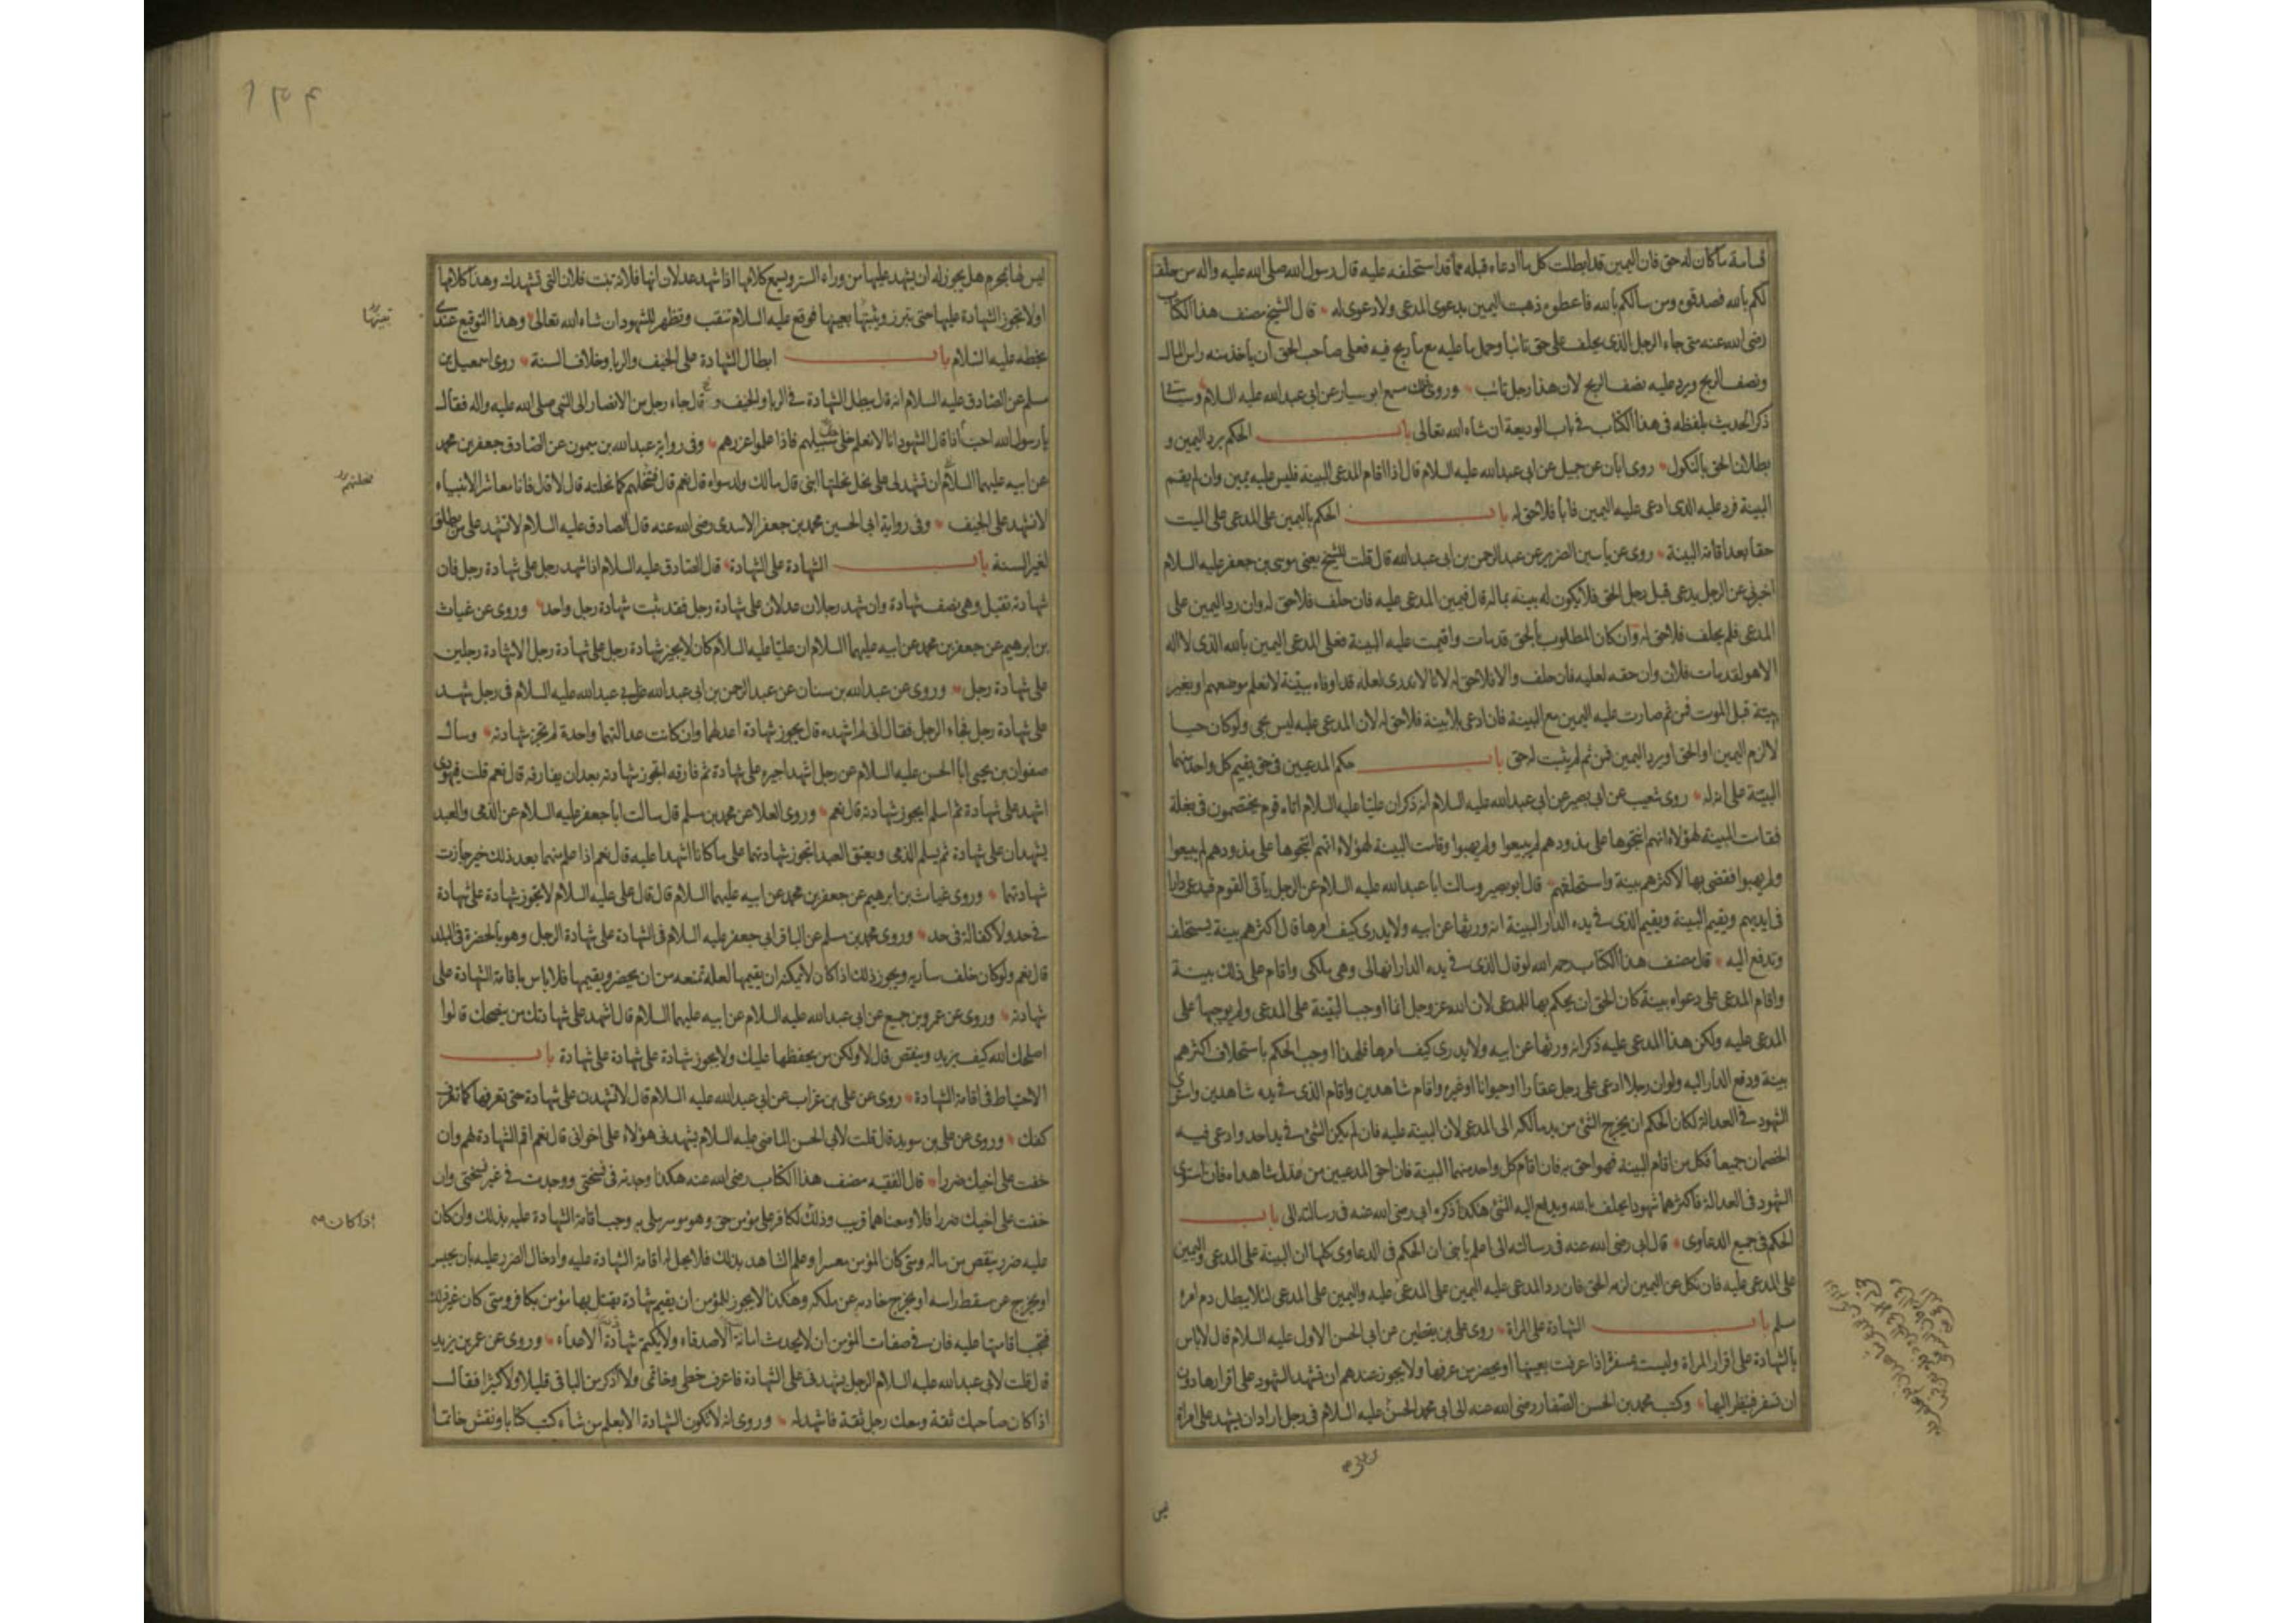 قسامة ما كان له حق فان اليمين قد ابطلت كل ما ادعاه قبله مما قد استحلفه عليه قال رسول الله صلى الله عليه واله من حلف
لكم بالله فصدقوه ومن سالكم بالله فاعطوه ذهبت اليمين بدعوى المدعى ولا دعوى له قال الشيخ مصنف هذا الكتاب
رضى الله عنه متى جاء الرجل الذى يحلف على حق تائبا وحمل ما عليه مع ما ربح فيه فعلى صاحب الحق ان ياخذ منه راس المال
ونصف الربح ويرد عليه نصف الربح لان هذا رجل تائب وروى ذلك مسمع ابو سيار عن ابى عبد الله عليه السلام
ذكر الحديث بلفظه فى هذا الكتاب فى باب الوديعة ان شاء الله تعالى باب الحكم برد اليمين و
بطلان الحق بالنكول روى ابان عن جميل عن ابى عبد الله عليه السلام قال اذا اقام المدعى البينة فليس عليه يمين وان لم يقم
البينة فرد عليه الذى ادعى عليه اليمين فابا فلا حق له باب الحكم باليمين على المدعى على الميت
حقا بعد اقامة البينة روى عن ياسين الضرير عن عبد الرحمن بن ابى عبد الله قال قلت للشيخ يعنى موسى بن جعفر عليه السلام
اخبرنى عن الرجل يدعى قبل رجل الحق فلا يكون له بينة بماله قال فيمين المدعى عليه فان حلف فلا حق له وان رد اليمين على
المدعى فلم يحلف فلا حق له وان كان المطلوب بالحق قد مات واقيمت عليه البينة فعلى المدعى اليمين بالله الذى لا اله
الا هو لقد مات فلان وان حقه لعليه فان حلف والا فلا حق له لانا لا ندرى لعله قد اوفاه ببينة لا نعلم موضعهم او بغير
بينة قبل الموت فمن ثم صارت عليه اليمين مع البينة فان ادعى بلا بينة فلا حق له لان المدعى عليه ليس بحى ولو كان حيا
لالزم اليمين او الحق او يرد اليمين فمن ثم لم يثبت له حق باب حكم المدعيين فى حق يقيم كل واحد منهما
البينة على انه له روى شعيب عن ابى بصير عن ابى عبد الله عليه السلام انه ذكر ان عليا عليه السلام اتاه قوم يختصمون فى بغلة
فقامت البينة لهؤلاء انهم انتجوها على مذودهم لم يبيعوا ولم يهبوا وقامت البينة لهؤلاء انهم انتجوها على مذودهم لم يبيعوا
ولم يهبوا فقضى بها لاكثرهم بينة واستحلفهم قال ابو بصير وسالت ابا عبد الله عليه السلام عن الرجل ياتى القوم فيدعى دارا
فى ايديهم ويقيم البينة ويقيم الذى فى يده الدار البينة انه ورثها عن ابيه ولا يدرى كيف امرها قال اكثرهم بينة يستحلف
وتدفع اليه قال مصنف هذا الكتاب رحمه الله لو قال الذى فى يده الدار انها لى وهى ملكى واقام على ذلك بينة
واقام المدعى على دعواه بينة كان الحق ان يحكم بها للمدعى لان الله عز وجل انما اوجب البينة على المدعى ولم يوجبها على
المدعى عليه ولكن هذا المدعى عليه ذكر انه ورثها عن ابيه ولا يدرى كيف امرها فلهذا اوجب الحكم باستحلاف اكثرهم
بينة ودفع الدار اليه ولو ان رجلا ادعى على رجل عقارا او حيوانا او غيره واقام شاهدين واقام الذى فى يده شاهدين واستوى
الشهود فى العدالة لكان الحكم ان يخرج الشئ من يد مالكه الى المدعى لان البينة عليه فان لم يكن الشئ فى يد احد وادعى فيه
الخصمان جميعا فكل من اقام البينة فهو احق به فان اقام كل واحد منهما البينة فان احق المدعيين من عدل شاهداه فان استوى
الشهود فى العدالة فاكثرهما شهودا يحلف بالله ويدفع اليه الشئ هكذا ذكره ابى رضى الله عنه فى رسالته الى باب
الحكم فى جميع الدعاوى قال ابى رضى الله عنه فى رسالته الى اعلم يا بنى ان الحكم فى الدعاوى كلها ان البينة على المدعى واليمين
على المدعى عليه فان نكل عن اليمين لزمه الحق فان رد المدعى عليه اليمين على المدعى عليه واليمين على المدعى لئلا يبطل دم امرء
مسلم باب الشهادة على المراة روى على بن يقطين عن ابى الحسن الاول عليه السلام قال لا باس
بالشهادة على اقرار المراة وليست بمسفرة اذا عرفت بعينها او يحضر من عرفها ولا يجوز عندهم ان تشهد الشهود على اقرارها دون
ان تسفر فينظر اليها وكتب محمد بن الحسن الصفار رضى الله عنه الى ابى محمد الحسن عليه السلام فى رجل اراد ان يشهد على امراة
ليس
ليس لها بمحرم هل يجوز له ان يشهد عليها من وراء الستر ويسمع كلامها اذا شهد عدلان انها فلانة بنت فلان التى تشهدك وهذا كلامها
او لا تجوز الشهادة عليها حتى تبرز ويثبتها بعينها فوقع عليه السلام تتنقب وتظهر للشهود ان شاء الله تعالى وهذا التوقيع عندى
بخطه عليه السلام باب ابطال الشهادة على الحيف والربا وخلاف السنة روى اسمعيل بن
مسلم عن الصادق عليه السلام انه قال يبطل الشهادة فى الربا والحيف و قال جاء رجل من الانصار الى النبى صلى الله عليه واله فقال
يا رسول الله احب اذا قال الشهود انا لا نعلم خلى سبيلهم فاذا علموا عزرهم وفى رواية عبد الله بن ميمون عن الصادق جعفر بن محمد
عن ابيه عليهما السلام ان تشهد لى على نخل نحلتها ابنى قال مالك ولد سواه قال نعم قال فنحلتهم كما نحلته قال لا قال فانا معاشر الانبياء
لا نشهد على الحيف وفى رواية ابى الحسين محمد بن جعفر الاسدى رضى الله عنه قال الصادق عليه السلام لا تشهد على من يطلق
لغير السنة باب الشهادة على الشهادة قال الصادق عليه السلام اذا شهد رجل على شهادة رجل فان
شهادته تقبل وهى نصف شهادة وان شهد رجلان عدلان على شهادة رجل فقد ثبت شهادة رجل واحد وروى عن غياث
بن ابرهيم عن جعفر بن محمد عن ابيه عليهما السلام ان عليا عليه السلام كان لا يجيز شهادة رجل على شهادة رجل الا شهادة رجلين
على شهادة رجل وروى عن عبد الله بن سنان عن عبد الرحمن بن ابى عبد الله عن ابى عبد الله عليه السلام فى رجل شهد
على شهادة رجل فجاء الرجل فقال انى لم اشهده قال يجوز شهادة اعدلهما وان كانت عدالتهما واحدة لم تجز شهادته وسال
صفوان بن يحيى ابا الحسن عليه السلام عن رجل اشهد اجيره على شهادة ثم فارقه اتجوز شهادته بعد ان يفارقه قال نعم قلت فيهودى
اشهد على شهادة ثم اسلم ايجوز شهادته قال نعم وروى العلا عن محمد بن مسلم قال سالت ابا جعفر عليه السلام عن الذمى والعبد
يشهدان على شهادة ثم يسلم الذمى ويعتق العبد اتجوز شهادتهما على ما كانا اشهدا عليه قال نعم اذا علم منهما بعد ذلك خير جازت
شهادتهما وروى غياث بن ابرهيم عن جعفر بن محمد عن ابيه عليهما السلام قال قال على عليه السلام لا يجوز شهادة على شهادة
فى حد ولا كفالة فى حد وروى محمد بن مسلم عن الباقر ابى جعفر عليه السلام فى الشهادة على شهادة الرجل وهو بالحضرة فى البلد
قال نعم ولو كان خلف سارية ويجوز ذلك اذا كان لا يمكنه ان يقيمها لعلة تمنعه من ان يحضر ويقيمها فلا باس باقامة الشهادة على
شهادته وروى عن عمرو بن جميع عن ابى عبد الله عليه السلام عن ابيه عليهما السلام قال اشهد على شهادتك من ينصحك قالوا
اصلحك الله كيف يزيد وينقص قال لا ولكن من يحفظها عليك ولا يجوز شهادة على شهادة على شهادة باب
الاحتياط فى اقامة الشهادة روى عن على بن غراب عن ابى عبد الله عليه السلام قال لا تشهدن على شهادة حتى تعرفها كما تعرف
كفك وروى عن على بن سويد قال قلت لابى الحسن الماضى عليه السلام يشهدنى هؤلاء على اخوانى قال نعم اقم الشهادة لهم وان
خفت على اخيك ضررا قال الفقيه مصنف هذا الكتاب رضى الله عنه هكذا وجدته فى نسختى ووجدت فى غير نسختى وان
خفت على اخيك ضررا فلا ومعناهما قريب وذلك لكافر على مؤمن حق وهو موسر ملى به وجب اقامة الشهادة عليه بذلك وان كان
عليه ضرر ينقص من ماله ومتى كان المؤمن معسرا وعلم الشاهد بذلك فلا يحل له اقامة الشهادة عليه وادخال الضرر عليه بان يحبس
او يخرج عن مسقط راسه او يخرج خادمه عن ملكه وهكذا لا يجوز للمؤمن ان يقيم شهادة يقتل بها مؤمن بكافر ومتى كان غير ذلك
فيجب اقامتها عليه فان فى صفات المؤمن ان لا يحدث امانة الاصدقاء ولا يكتم شهادة الاعداء وروى عن عمر بن يزيد
قال قلت لابى عبد الله عليه السلام الرجل يشهدنى على الشهادة فاعرف خطى وخاتمى ولا اذكر من الباقى قليلا ولا كثيرا فقال
اذا كان صاحبك ثقة ومعك رجل ثقة فاشهد له وروى انه لا تكون الشهادة الا بعلم من شاء كتب كتابا ونقش خاتما
اذا كان